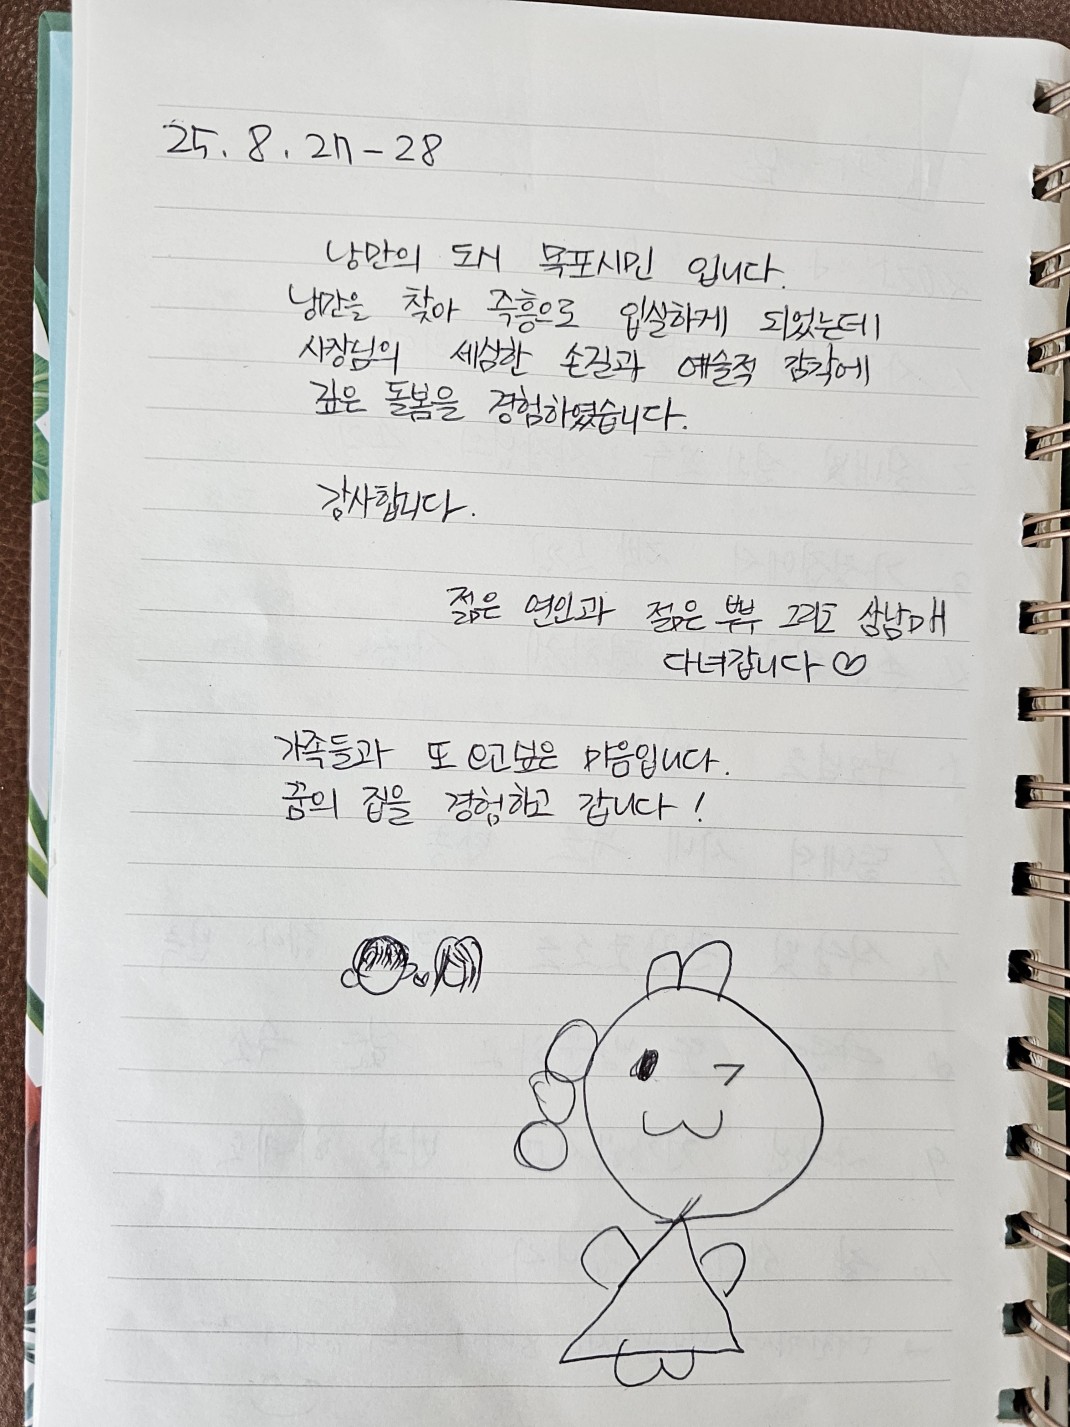 25. 8. 27 - 28
낭만의 도시 목포시민 입니다.
낭만을 찾아 즉흥으로 입실하게 되었는데
사장님의 세심한 손길과 예술적 감각에
깊은 돌봄을 경험하였습니다.
감사합니다.
젊은 연인과 젊은 부부 그리고 삼남매
다녀갑니다♡
가족들과 또 오고싶은 마음입니다.
꿈의 집을 경험하고 갑니다!